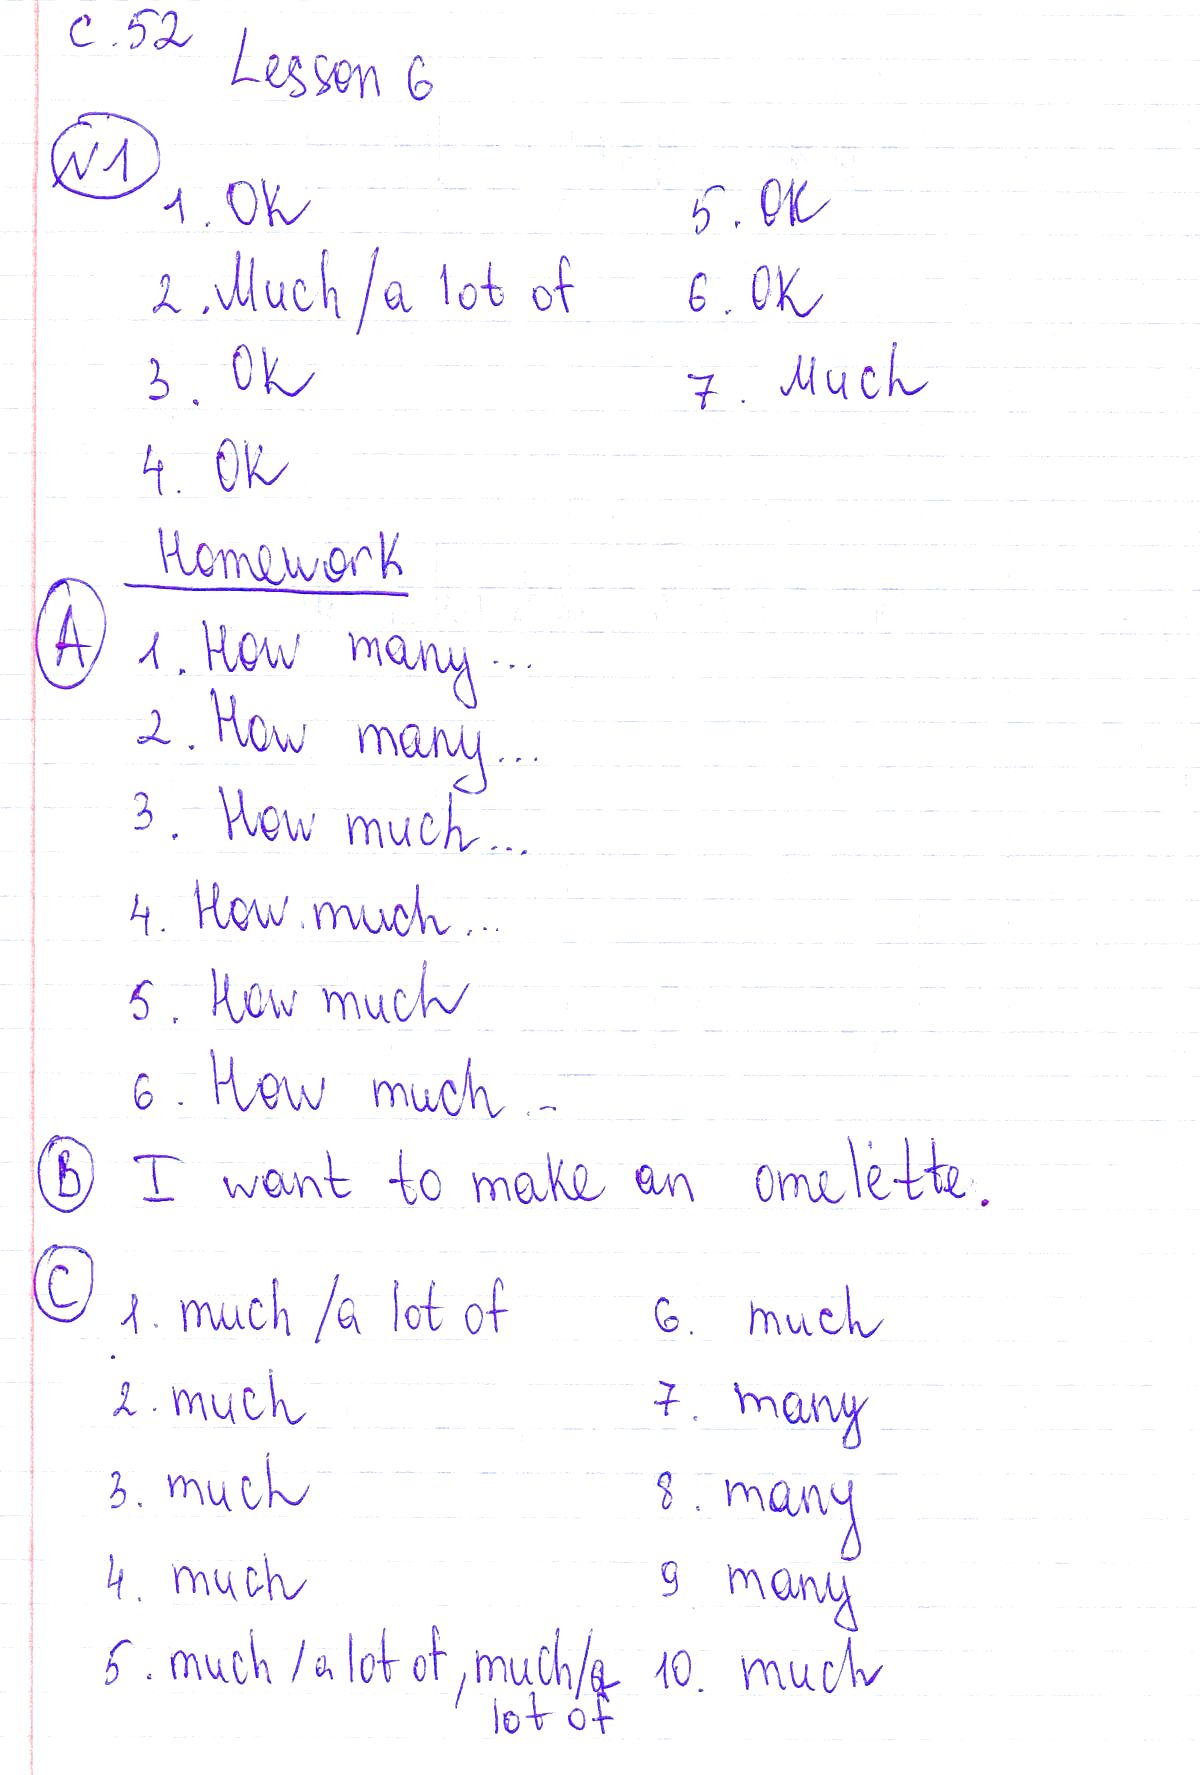 с. 52
Lesson 6
N1
1. OK
2. Much/a lot of
3. OK
4. OK
5. OK
6. OK
7. Much
Homework
A
1. How many...
2. How many...
3. How much...
4. How much...
5. How much
6. How much...
B I want to make an omelette.
C
1. much/a lot of
2. much
3. much
4. much
5. much/a lot of, much/a
lot of
6. much
7. many
8. many
9 many
10. much